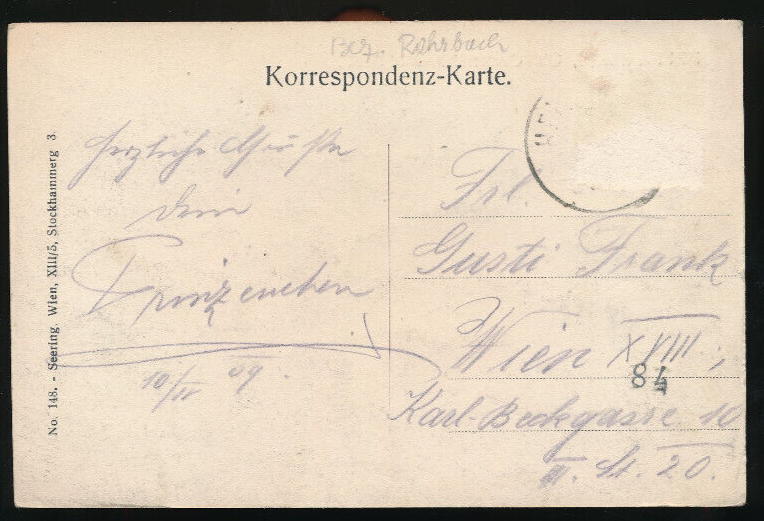 Bez. Rohrbach
Korrespondenz-Karte.
No. 148. - Seering, Wien, XIII/5, Stockhammerg 3.
herzliche Grüße
dein
Prinzenchen
10/II 09.
Frl.
Gusti Frank
Wien XVIII.,
84
Karl-Beckgasse 10
II. St. 20.